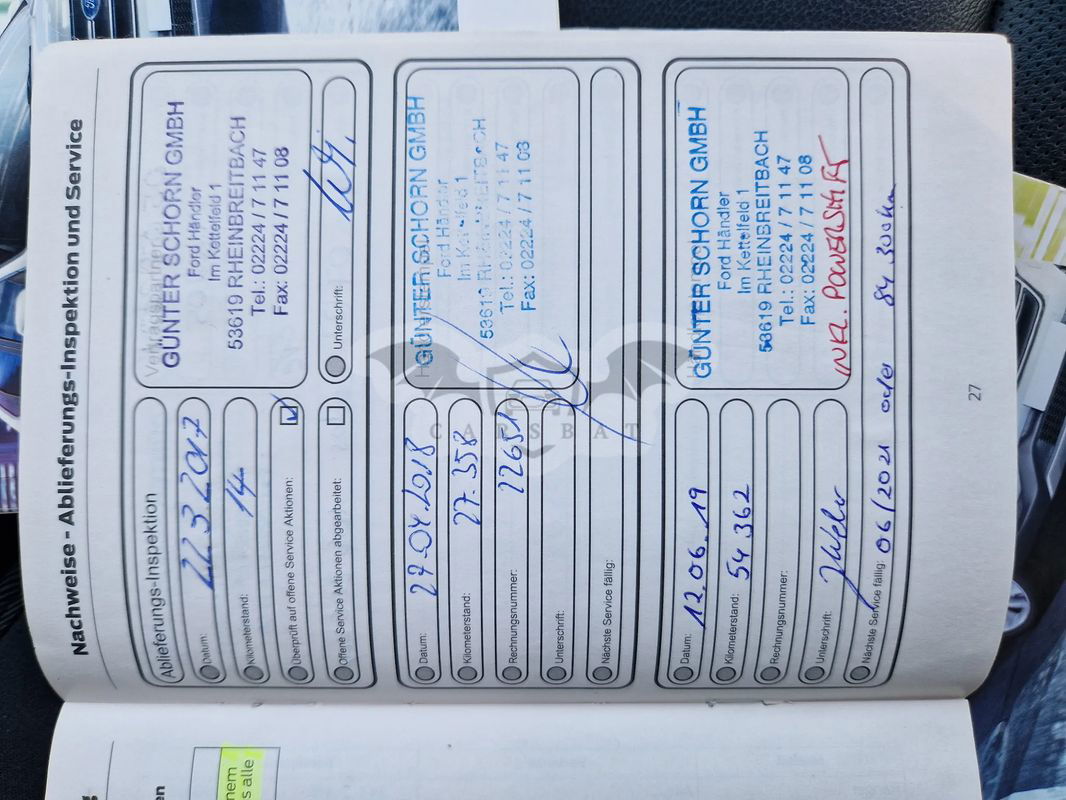 Nachweise - Ablieferungs-Inspektion und Service
Ablieferungs-Inspektion
Datum: 22 3 2017
Kilometerstand: 14
Überprüft auf offene Service Aktionen:
Offene Service Aktionen abgearbeitet:
Vertragspartner
GÜNTER SCHORN GMBH
Ford Händler
Im Kettelfeld 1
53619 RHEINBREITBACH
Tel.: 02224 / 7 11 47
Fax: 02224 / 7 11 08
Unterschrift:
Datum: 27.04.2018
Kilometerstand: 27.358
Rechnungsnummer: 22651
Unterschrift:
Nächste Service fällig:
GÜNTER SCHORN GMBH
Ford Händler
Im Kettelfeld 1
53619 RHEINBREITBACH
Tel.: 02224 / 7 11 47
Fax: 02224 / 7 11 08
CARSBAT
Datum: 12.06.19
Kilometerstand: 54 362
Rechnungsnummer:
Unterschrift: JWeber
Nächste Service fällig: 06/2021 oder 84 300km
GÜNTER SCHORN GMBH
Ford Händler
Im Kettelfeld 1
53619 RHEINBREITBACH
Tel.: 02224 / 7 11 47
Fax: 02224 / 7 11 08
INKL. POWERSHIFT
27
nem
s alle
en
Ford